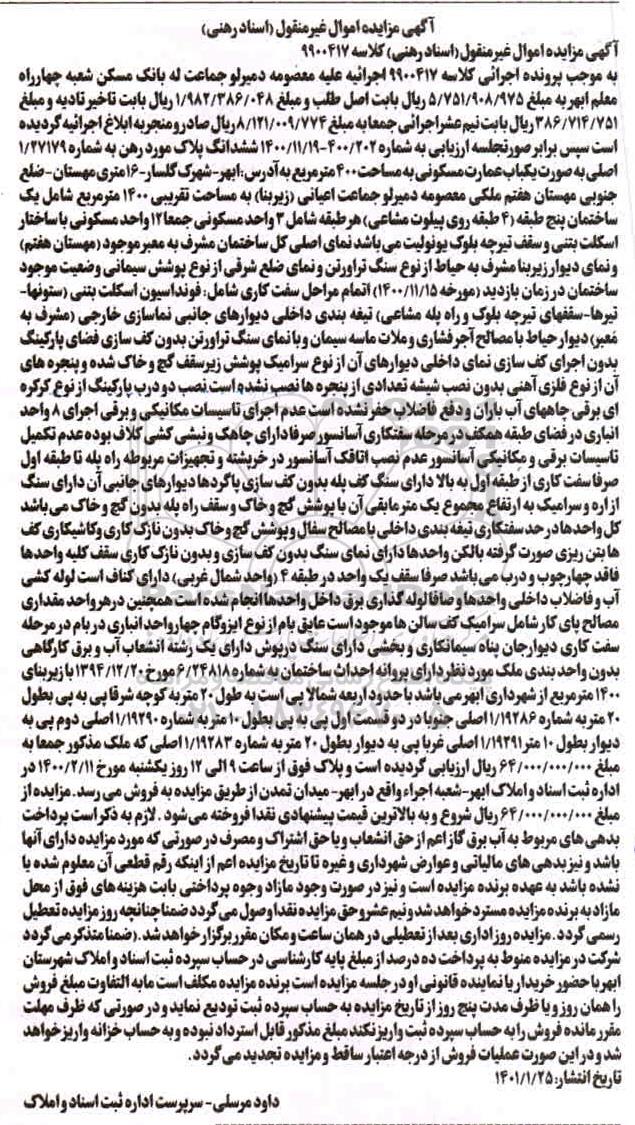 آگهی مزایده اموال غیرمنقول (اسناد رهنی)
آگهی مزایده اموال غیرمنقول (اسناد رهنی) کلاسه ۹۹۰۰۴۱۷
به موجب پرونده اجرائی کلاسه ۹۹۰۰۴۱۷ اجرائیه علیه معصومه دمیرلو جماعت له بانک مسکن شعبه چهارراه
معلم ابهر به مبلغ ۵/۷۵۱/۹۰۸/۹۷۵ ریال بابت اصل طلب و مبلغ ۱/۹۸۲/۳۸۶/۰۴۸ ریال بابت تاخیر تادیه و مبلغ
۳۸۶/۷۱۴/۷۵۱ ریال بابت نیم عشر اجرائی جمعا به مبلغ ۸/۱۲۱/۰۰۹/۷۷۴ ریال صادر و منجر به ابلاغ اجرائیه گردیده
است سپس برابر صورتجلسه ارزیابی به شماره ۴۰۰/۲۰۲-۱۴۰۰/۱۱/۱۹ ششدانگ پلاک مورد رهن به شماره ۱/۲۷۱۷۹
اصلی به صورت یکباب عمارت مسکونی به مساحت ۴۰۰ مترمربع به آدرس: ابهر-شهرک گلسار-۱۶ متری مهستان-ضلع
جنوبی مهستان هفتم ملکی معصومه دمیرلو جماعت اعیانی (زیربنا) به مساحت تقریبی ۱۴۰۰ مترمربع شامل یک
ساختمان پنج طبقه (۴ طبقه روی پیلوت مشاعی) هر طبقه شامل ۳ واحد مسکونی جمعا ۱۲ واحد مسکونی با ساختار
اسکلت بتنی و سقف تیرچه بلوک یونولیت می باشد نمای اصلی کل ساختمان مشرف به معبر موجود (مهستان هفتم)
و نمای دیوار زیربنا مشرف به حیاط از نوع سنگ تراورتن و نمای ضلع شرقی از نوع پوشش سیمانی وضعیت موجود
ساختمان در زمان بازدید (مورخه ۱۴۰۰/۱۱/۱۵) اتمام مراحل سفت کاری شامل: فونداسیون اسکلت بتنی (ستونها-
تیرها-سقفهای تیرچه بلوک و راه پله مشاعی) تیغه بندی داخلی دیوارهای جانبی نماسازی خارجی (مشرف به
معبر) دیوار حیاط با مصالح آجر فشاری و ملات ماسه سیمان و با نمای سنگ تراورتن بدون کف سازی فضای پارکینگ
بدون اجرای کف سازی نمای داخلی دیوارهای آن از نوع سرامیک پوشش زیر سقف گچ و خاک شده و پنجره های
آن از نوع فلزی آهنی بدون نصب شیشه تعدادی از پنجره ها نصب نشده است نصب دو درب پارکینگ از نوع کرکره
ای برقی چاههای آب باران و دفع فاضلاب حفر نشده است عدم اجرای تاسیسات مکانیکی و برقی اجرای ۸ واحد
انباری در فضای طبقه همکف در مرحله سفتکاری آسانسور صرفا دارای چاهک و نبشی کشی کلاف بوده عدم تکمیل
تاسیسات برقی و مکانیکی آسانسور عدم نصب اتاقک آسانسور در خرپشته و تجهیزات مربوطه راه پله تا طبقه اول
صرفا سفت کاری از طبقه اول به بالا دارای سنگ کف پله بدون کف سازی پاگردها دیوارهای جانبی آن دارای سنگ
از اره و سرامیک به ارتفاع مجموع یک متر مابقی آن با پوشش گچ و خاک و سقف راه پله بدون گچ و خاک می باشد
کل واحدها در حد سفتکاری تیغه بندی داخلی با مصالح سفال و پوشش گچ و خاک بدون نازک کاری و کاشیکاری کف
ها بتن ریزی صورت گرفته بالکن واحدها دارای نمای سنگ بدون کف سازی و بدون نازک کاری سقف کلیه واحدها
فاقد چهارچوب و درب می باشد صرفا سقف یک واحد در طبقه ۴ (واحد شمال غربی) دارای کناف است لوله کشی
آب و فاضلاب داخلی واحدها و صافا لوله گذاری برق داخل واحدها انجام شده است همچنین در هر واحد مقداری
مصالح پای کار شامل سرامیک کف سالن ها موجود است عایق بام از نوع ایزوگام چهار واحد انباری در بام در مرحله
سفت کاری دیوار جان پناه سیمانکاری و بخشی دارای سنگ درپوش دارای یک رشته انشعاب آب و برق کارگاهی
بدون واحد بندی ملک مورد نظر دارای پروانه احداث ساختمان به شماره ۶/۲۴۸۱۸ مورخ ۱۳۹۴/۱۲/۲۰ با زیربنای
۱۴۰۰ مترمربع از شهرداری ابهر می باشد با حدود اربعه شمالا پی است به طول ۲۰ متر به کوچه شرقا پی به پی بطول
۲۰ متر به شماره ۱/۱۹۲۸۶ اصلی جنوبا در دو قسمت اول پی به پی بطول ۱۰ متر به شماره ۱/۱۹۲۹۰ اصلی دوم پی به
دیوار بطول ۱۰ متر ۱/۱۹۲۹۱ اصلی غربا پی به دیوار بطول ۲۰ متر به شماره ۱/۱۹۲۸۳ اصلی که ملک مذکور جمعا به
مبلغ ۶۴/۰۰۰/۰۰۰/۰۰۰ ریال ارزیابی گردیده است و پلاک فوق از ساعت ۹ الی ۱۲ روز یکشنبه مورخ ۱۴۰۰/۲/۱۱ در
اداره ثبت اسناد و املاک ابهر-شعبه اجراء واقع در ابهر-میدان تمدن از طریق مزایده به فروش می رسد. مزایده از
مبلغ ۶۴/۰۰۰/۰۰۰/۰۰۰ ریال شروع و به بالاترین قیمت پیشنهادی نقدا فروخته می شود. لازم به ذکر است پرداخت
بدهی های مربوط به آب برق گاز اعم از حق انشعاب و یا حق اشتراک و مصرف در صورتی که مورد مزایده دارای آنها
باشد و نیز بدهی های مالیاتی و عوارض شهرداری و غیره تا تاریخ مزایده اعم از اینکه رقم قطعی آن معلوم شده یا
نشده باشد به عهده برنده مزایده است و نیز در صورت وجود مازاد وجوه پرداختی بابت هزینه های فوق از محل
مازاد به برنده مزایده مسترد خواهد شد و نیم عشر و حق مزایده نقدا وصول می گردد ضمنا چنانچه روز مزایده تعطیل
رسمی گردد. مزایده روز اداری بعد از تعطیلی در همان ساعت و مکان مقرر برگزار خواهد شد. (ضمنا متذکر می گردد
شرکت در مزایده منوط به پرداخت ده درصد از مبلغ پایه کارشناسی در حساب سپرده ثبت اسناد و املاک شهرستان
ابهر با حضور خریدار یا نماینده قانونی او در جلسه مزایده است برنده مزایده مکلف است مابه التفاوت مبلغ فروش
را همان روز و یا ظرف مدت پنج روز از تاریخ مزایده به حساب سپرده ثبت تودیع نماید و در صورتی که ظرف مهلت
مقرر مانده فروش را به حساب سپرده ثبت واریز نکند مبلغ مذکور قابل استرداد نبوده و به حساب خزانه واریز خواهد
شد و در این صورت عملیات فروش از درجه اعتبار ساقط و مزایده تجدید می گردد.
تاریخ انتشار: ۱۴۰۱/۱/۲۵
داود مرسلی- سرپرست اداره ثبت اسناد و املاک